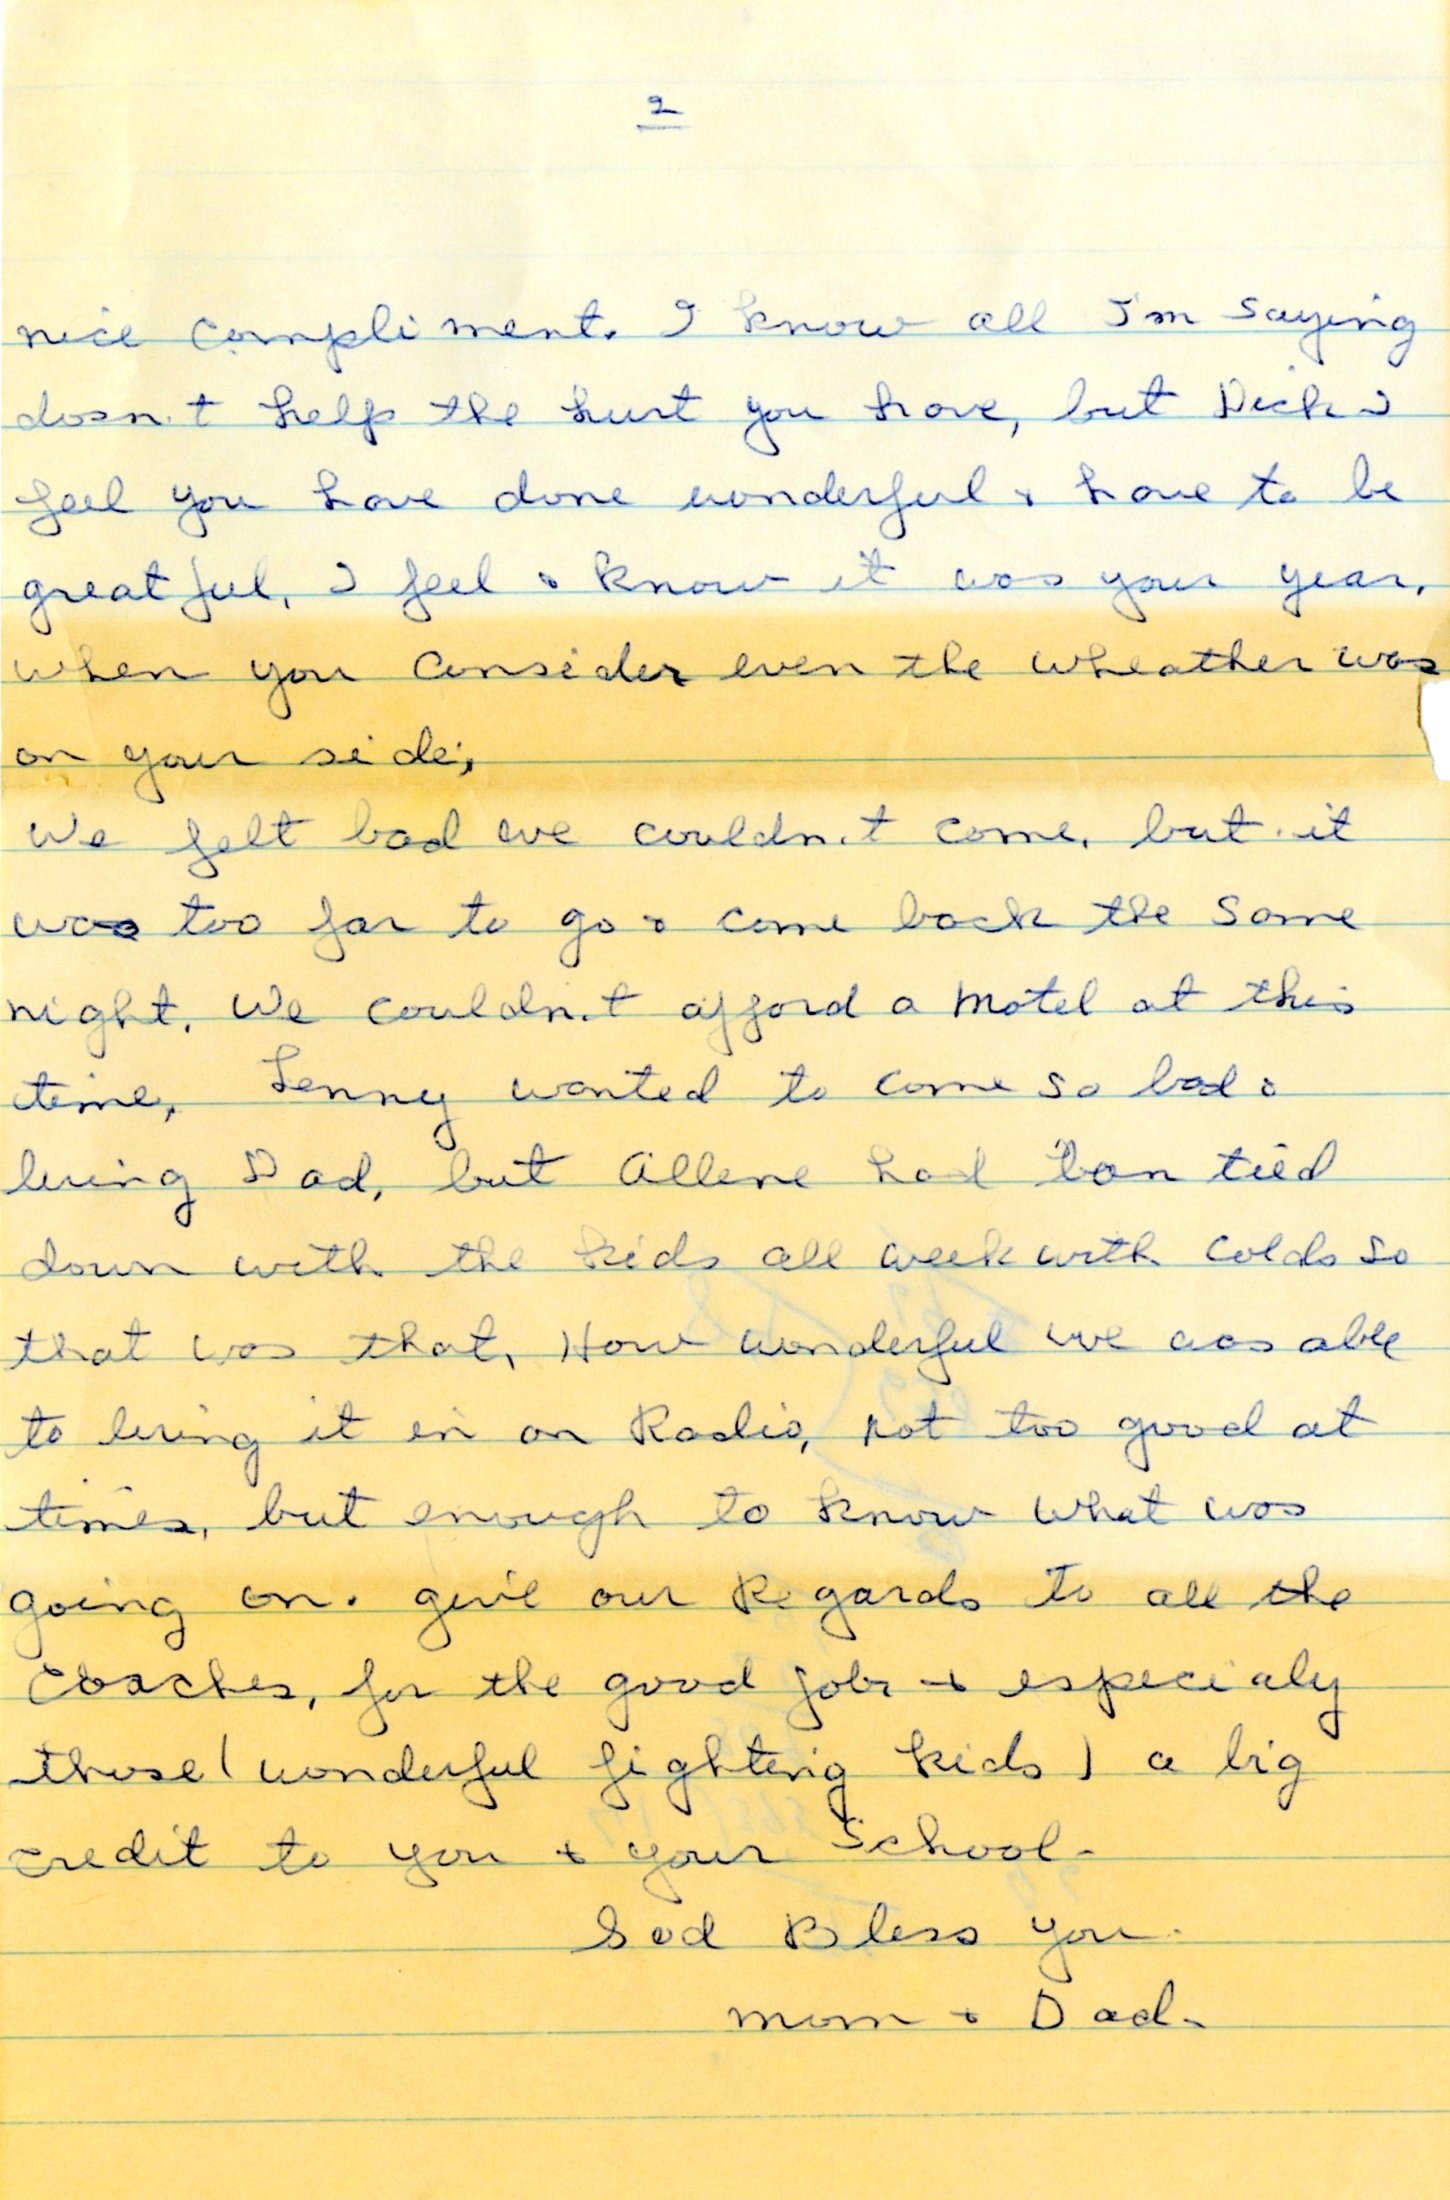 2
nice compliment. I know all I'm saying
dosn.t help the hurt you have, but Dick I
feel you have done wonderful & have to be
greatful, I feel & know it was your year,
when you consider even the wheather was
on your side,
We felt bad we couldn.t come, but it
was too far to go & come back the same
night. We couldn.t afford a motel at this
time, Lenny wanted to come so bad &
bring Dad, but Allene had ban tied
down with the kids all week with colds so
that was that, How wonderful we was able
to bring it in on Radio, not too good at
times, but enough to know what was
going on. give our Regards to all the
Coaches, for the good job & especialy
those (wonderful fighting kids) a big
credit to you & your School.
God Bless you.
mom & Dad.